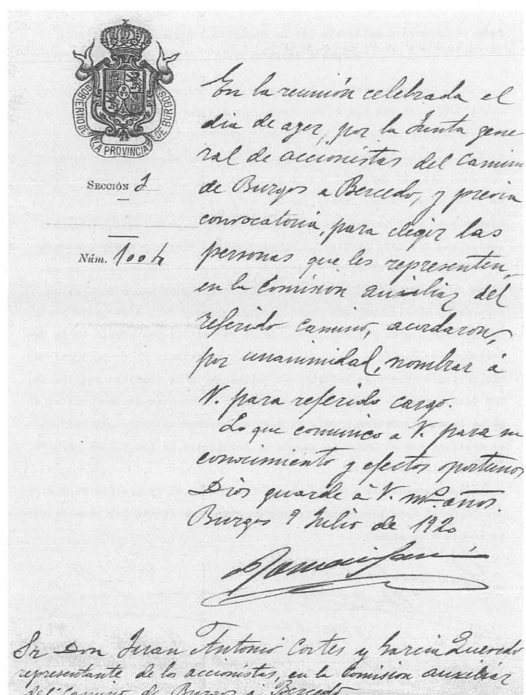 GOBIERNO DE LA PROVINCIA DE BURGOS
SECCIÓN 1
Núm. 1004
En la reunión celebrada el
dia de ayer, por la Junta gene
ral de accionistas del Camino
de Burgos a Bercedo, y previa
convocatoria, para elegir las
personas que les representen,
en la Comision auxiliar del
referido camino, acordaron,
por unanimidad, nombrar á
V. para referido cargo.
Lo que comunico a V. para su
conocimiento y efectos oportunos
Dios guarde á V. ms años.
Burgos 9 Julio de 1920
Sr Don Juan Antonio Cortes y Garcia Quevedo
representante de los accionistas, en la Comision auxiliar
del Camino de Burgos a Bercedo